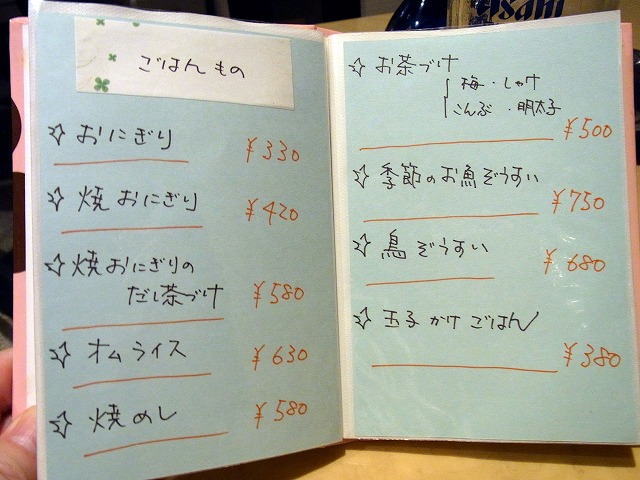 Asahi
ごはんもの
☆ おにぎり
¥330
☆ 焼おにぎり
¥420
☆ 焼おにぎりの
だし茶づけ ¥580
☆ オムライス
¥630
☆ 焼めし
¥580
☆ お茶づけ
梅・しゃけ
こんぶ・明太子
¥500
☆ 季節のお魚ぞうすい
¥750
☆ 鳥ぞうすい
¥680
☆ 玉子かけごはん
¥380